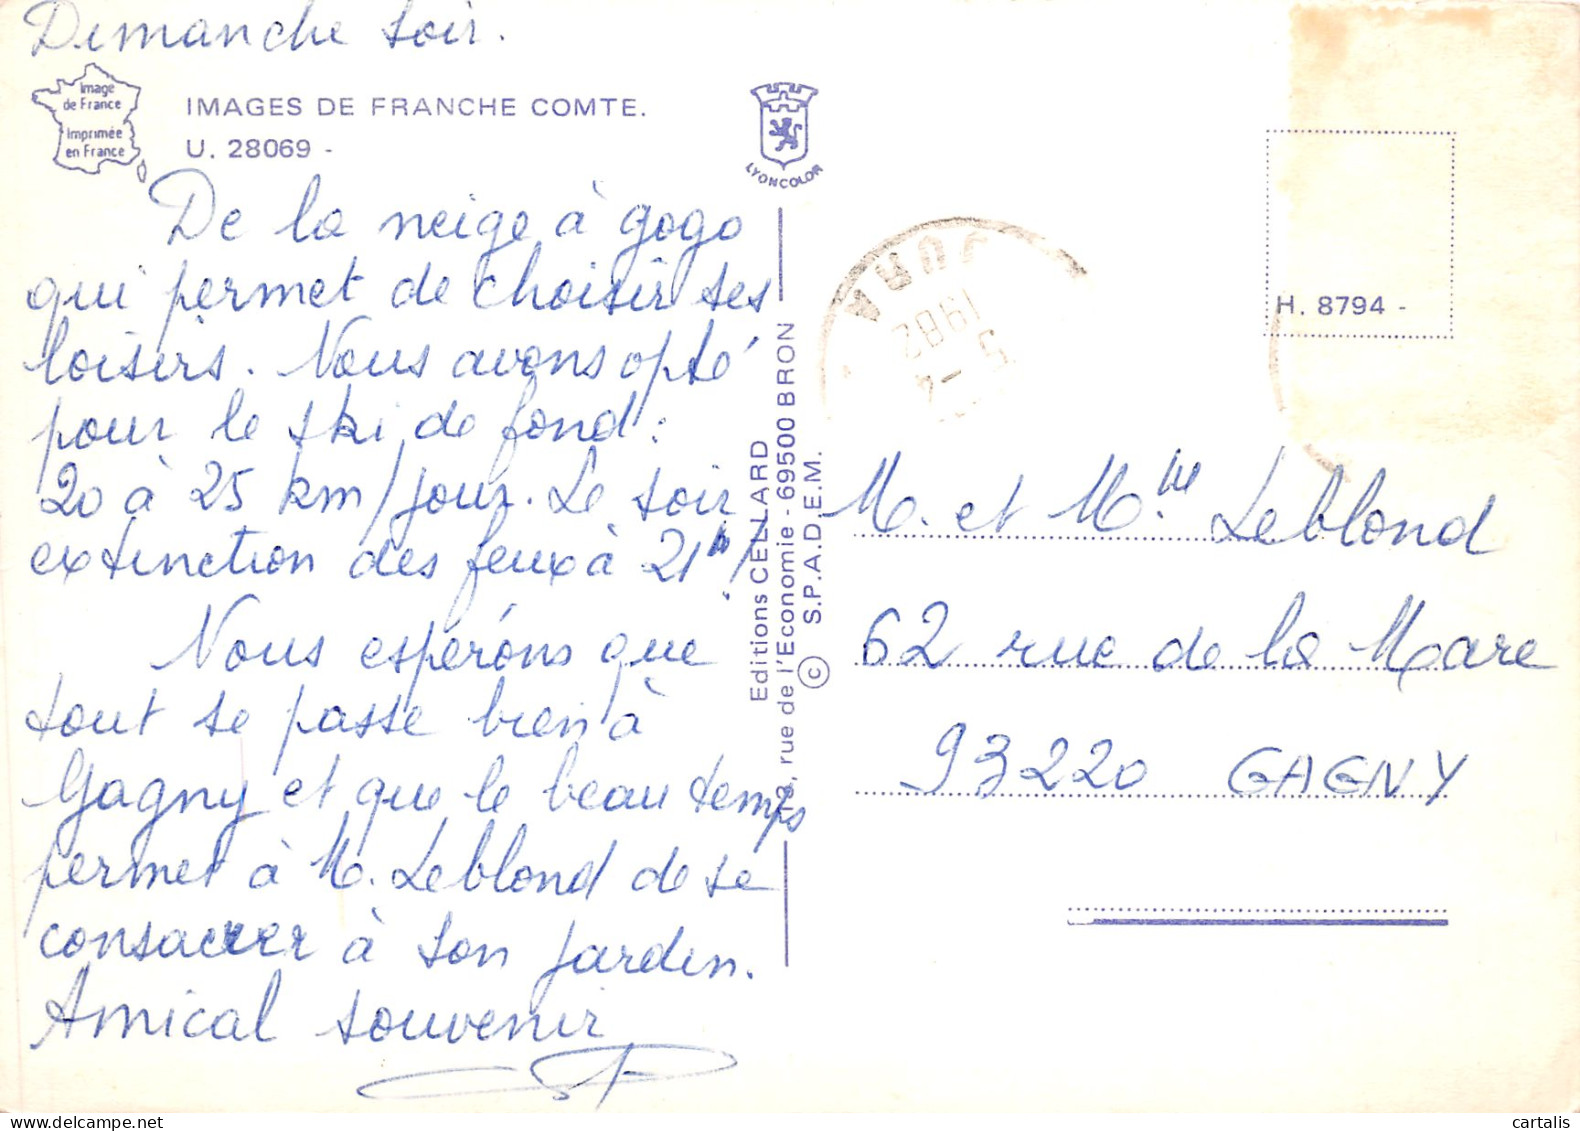 Dimanche soir.
Image
de France
Imprimée
en France
IMAGES DE FRANCHE COMTE.
U. 28069 -
LYONCOLOR
De la neige à gogo
qui permet de choisir ses
loisirs. Nous avons opté
pour le ski de fond :
20 à 25 km/jour. Le soir
extinction des feux à 21h !
Nous espérons que
tout se passe bien à
Gagny et que le beau temps
permet à M. Leblond de se
consacrer à son jardin.
Amical souvenir
Editions CELLARD
rue de l'Economie - 69500 BRON
© S.P.A.D.E.M.
JURA
5 - 2
1982
H. 8794 -
M. et Mme Leblond
62 rue de la Mare
93220 GAGNY
cartalis